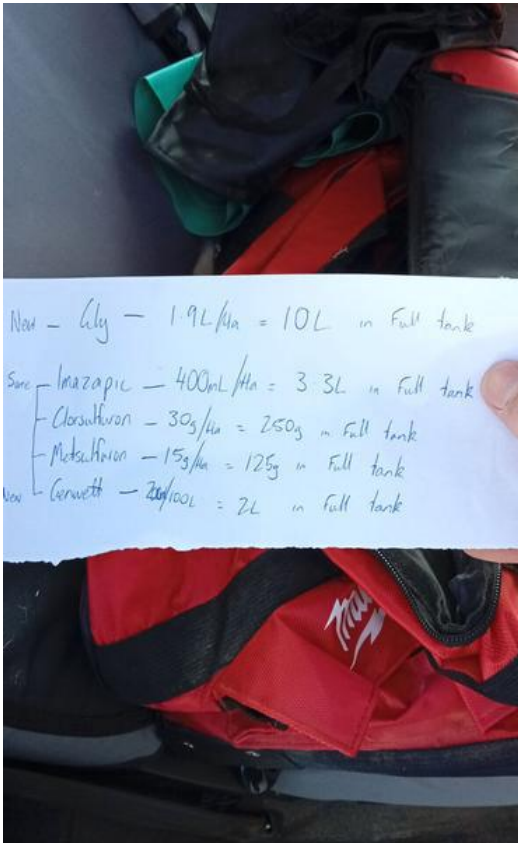 New - Gly - 1.9L/Ha = 10L in Full tank
Same - Imazapic - 400mL/Ha = 3.3L in Full tank
- Clorsulfuron - 30g/Ha = 250g in Full tank
- Metsulfuron - 15g/Ha = 125g in Full tank
New - Genwett - /100L = 2L in Full tank